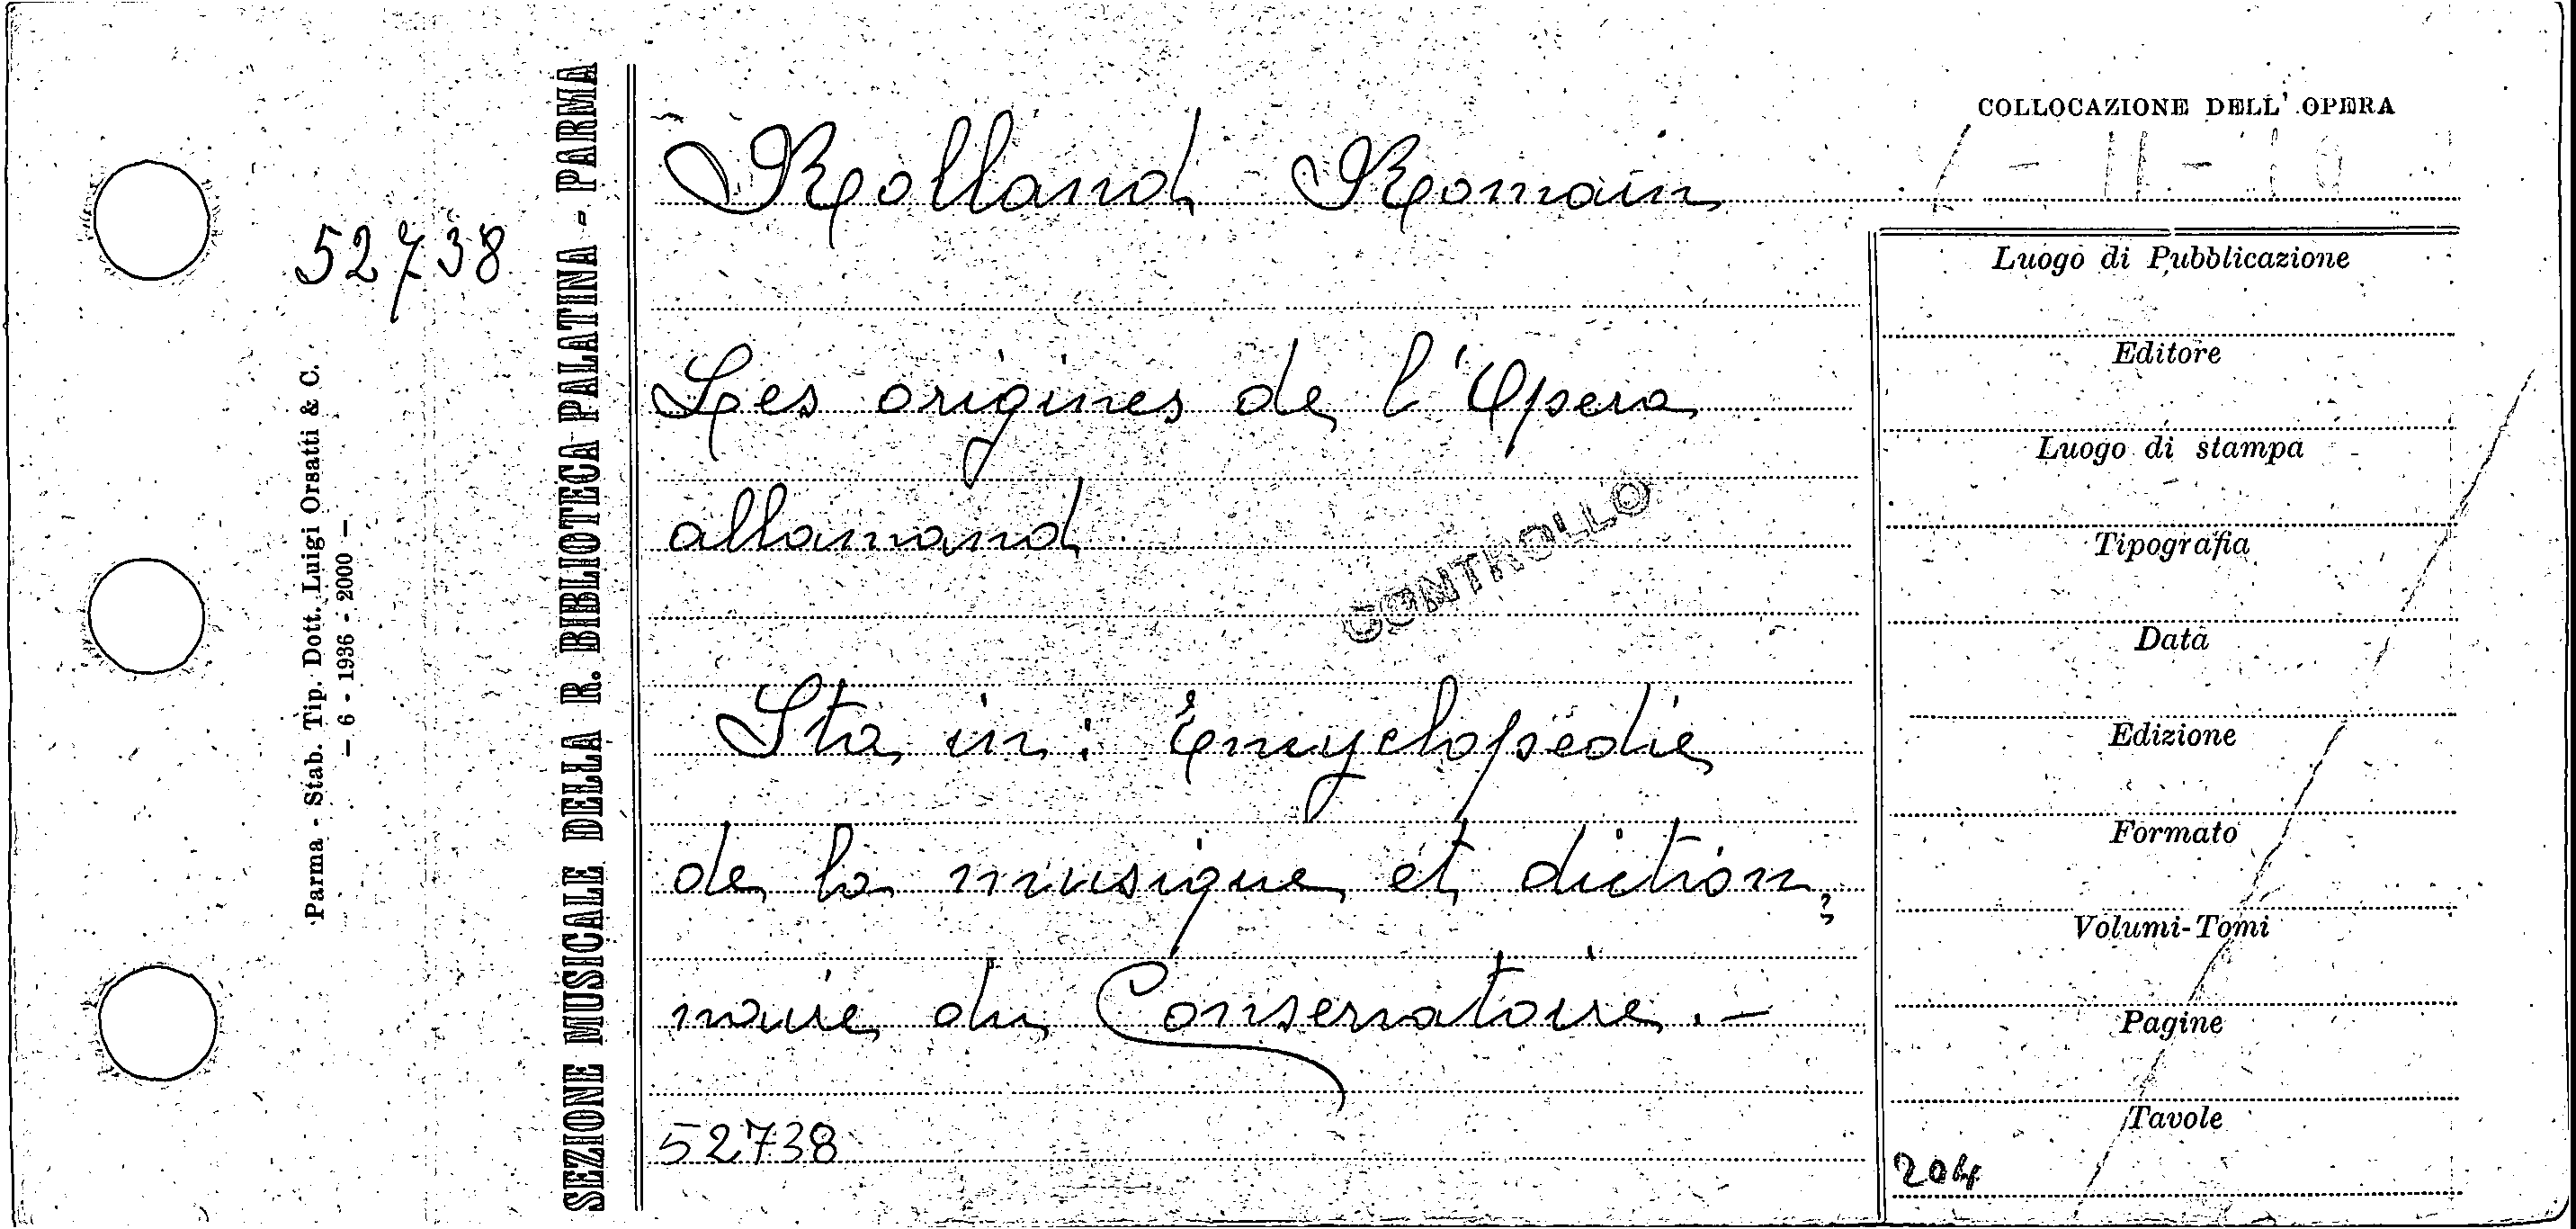 52738
Parma - Stab. Tip. Dott. Luigi Orsatti & C.
- 6 - 1936 - 2000 -
SEZIONE MUSICALE DELLA R. BIBLIOTECA PALATINA - PARMA
Rolland Romain
Les origines de l'Opera
allamand
CONTROLLO
Sta in: Encyclopédie
de la musique et diction,
naire du Conservatoire. -
52738
COLLOCAZIONE DELL' OPERA
Luogo di Pubblicazione
Editore
Luogo di stampa
Tipografia
Data
Edizione
Formato
Volumi-Tomi
Pagine
Tavole
204